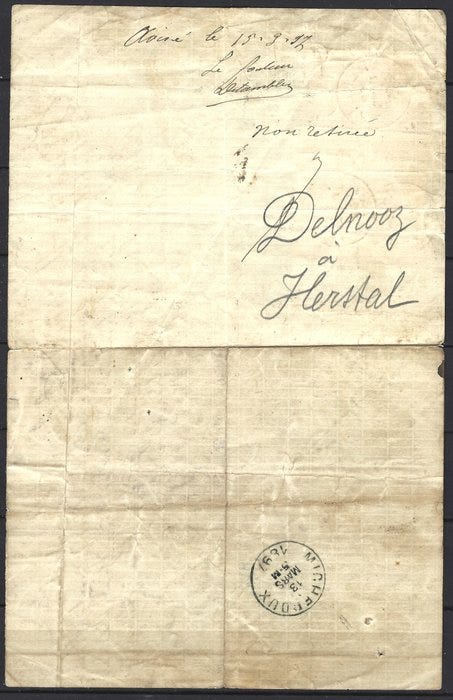 Avisé le 15-3-97
Le facteur
Detombleu
Non retirée
Delnooz
à
Herstal
MICHEROUX
13
MARS
5-M
1897